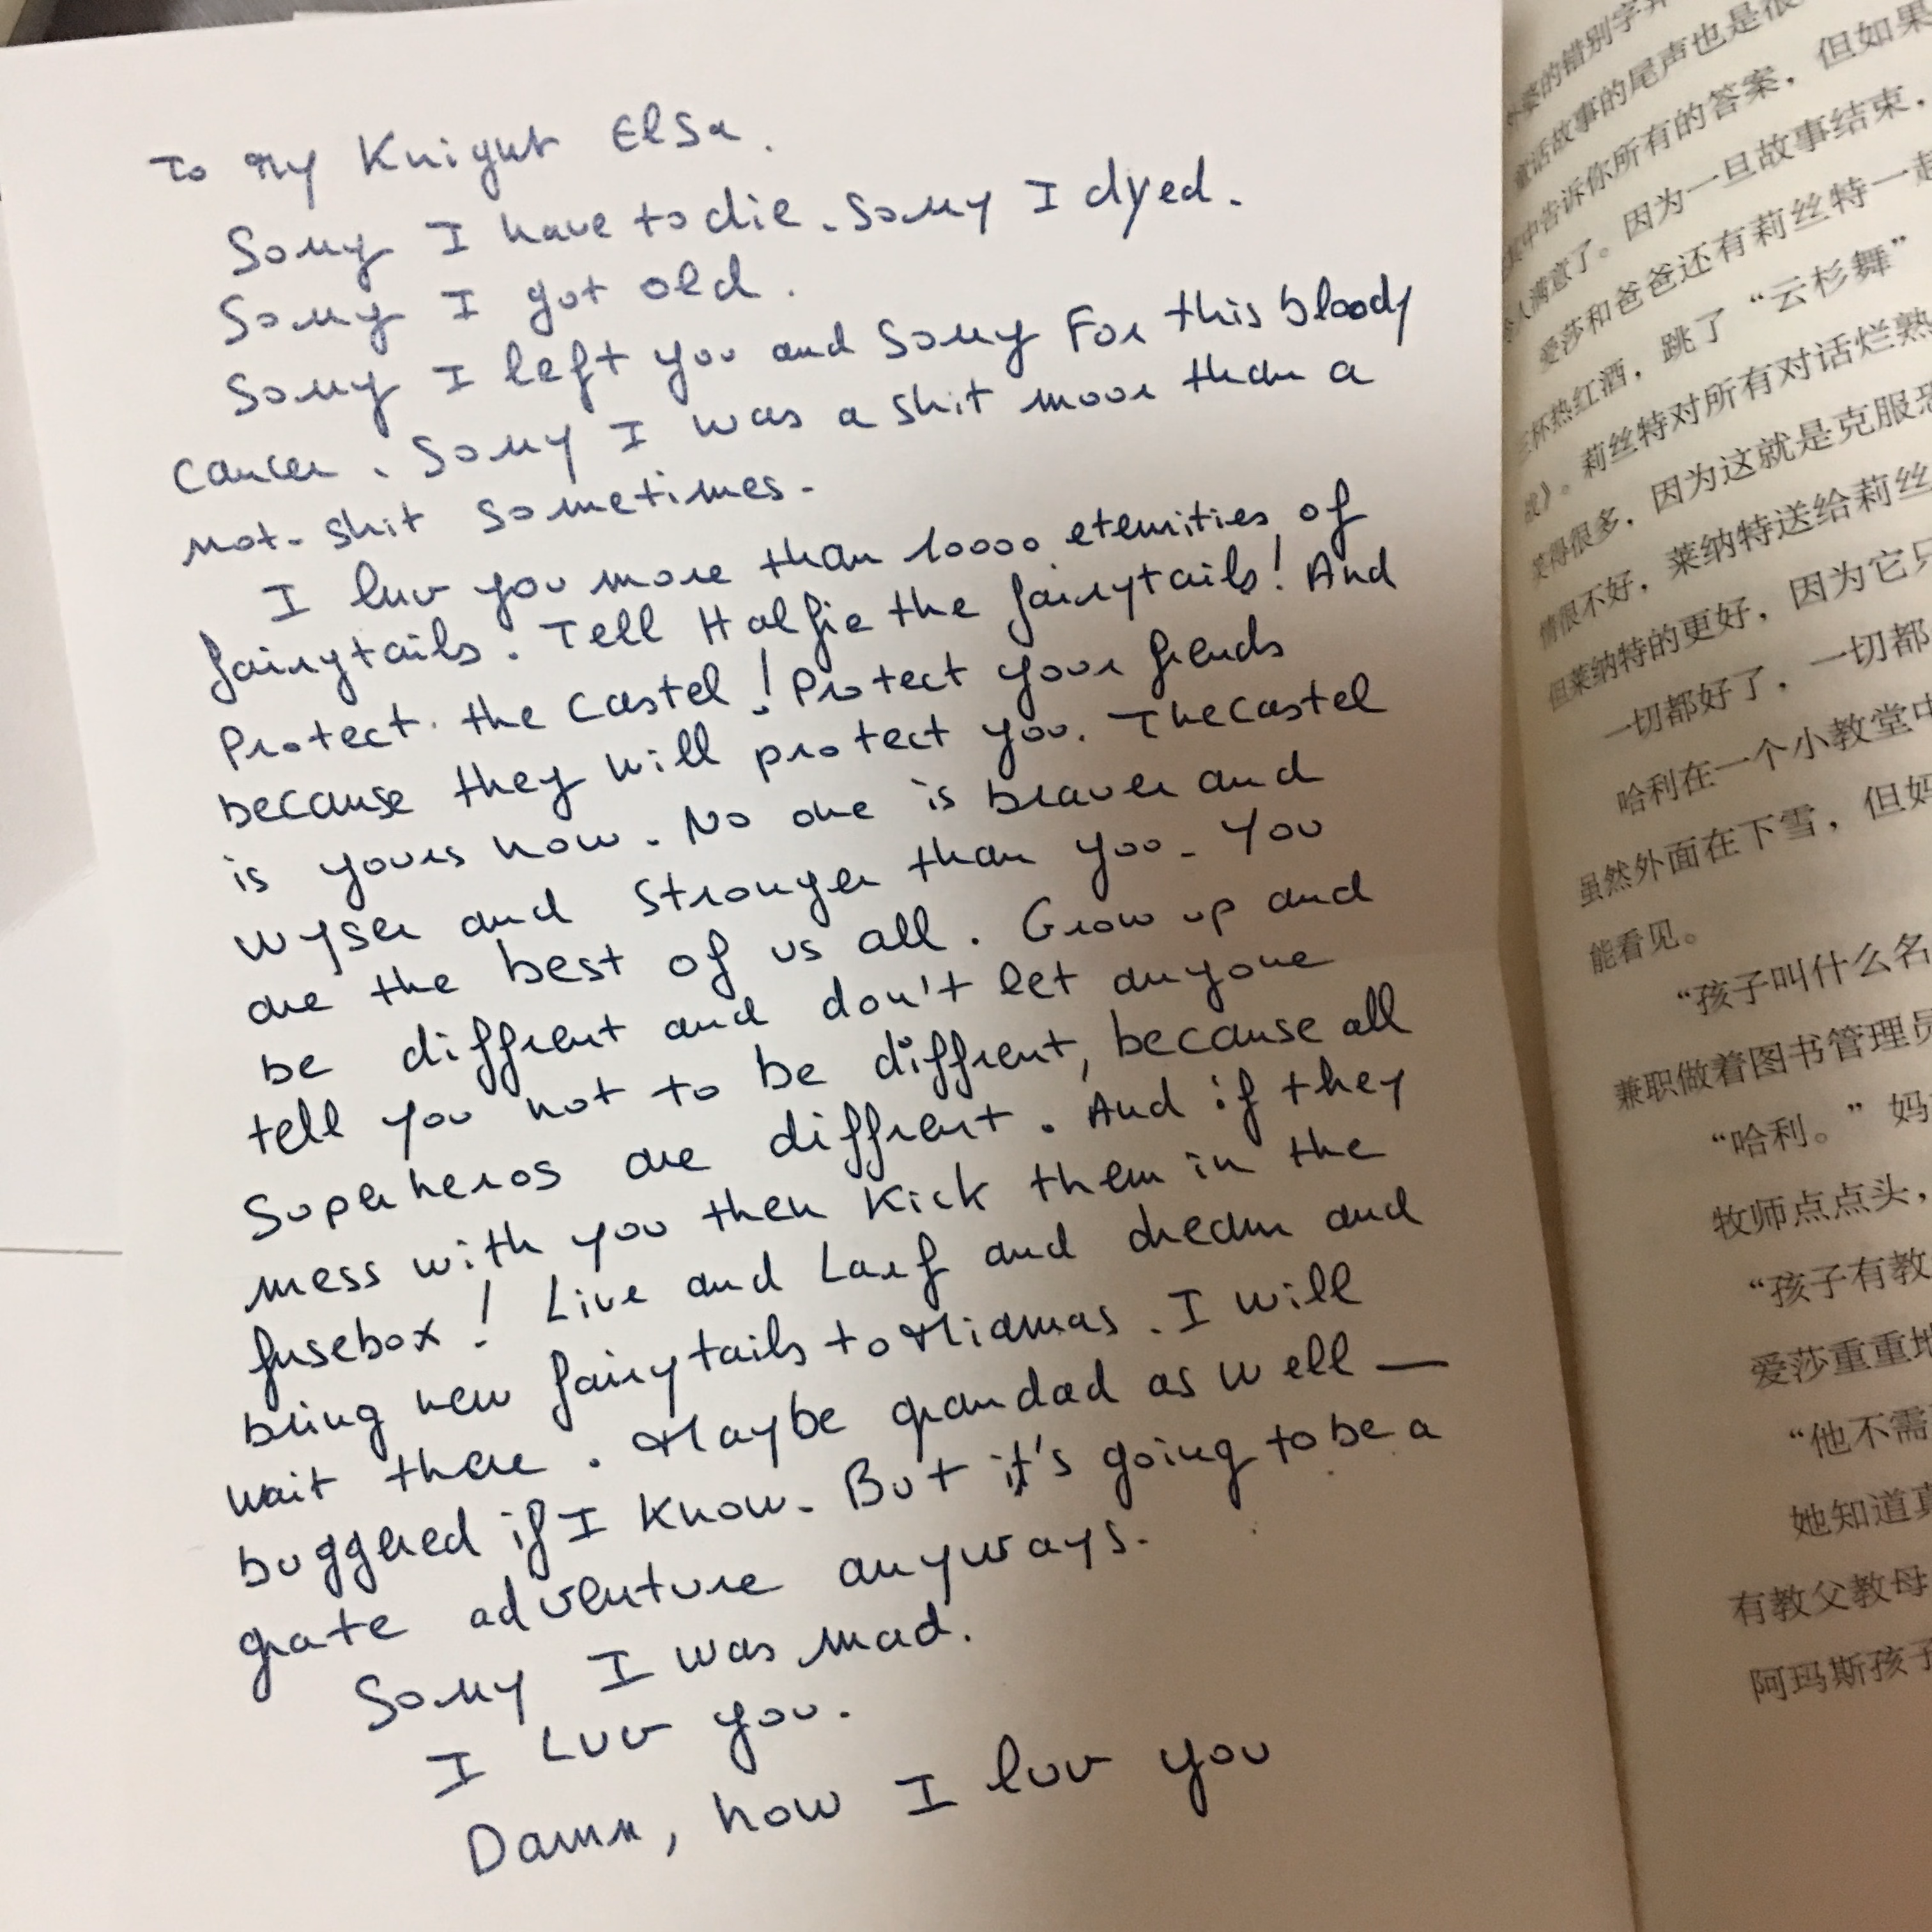 To My Knight Elsa.
Sorry I have to die. Sorry I dyed.
Sorry I got old.
Sorry I left you and sorry For this bloody
cancer. Sorry I was a shit moor than a
not-shit sometimes.
I luv you more than 10000 eternities of
fairytails. Tell Halfie the fairytails! And
Protect the castel! Protect your frends
because they will protect you. The Castel
is yours now. No one is braver and
wyser and stronger than you. You
are the best of us all. Grow up and
be diffrent and don't let anyone
tell you not to be diffrent, because all
Superheros are diffrent. And if they
mess with you then Kick them in the
fusebox! Live and Larf and dream and
bring new fairytails to Miamas. I will
wait there. Maybe grandad as well —
buggered if I know. But it's going to be a
grate adventure anyways.
Sorry I was mad.
I Luv you.
Damn, how I luv you
的错别字
童话故事的尾声也是很
中告诉你所有的答案，但如果
人满意了。因为一旦故事结束，
爱莎和爸爸还有莉丝特一起
杯热红酒，跳了“云杉舞”
》。莉丝特对所有对话烂熟
得很多，因为这就是克服恐
情很不好，莱纳特送给莉丝
但莱纳特的更好，因为它只
一切都好了，一切都
哈利在一个小教堂中
虽然外面在下雪，但妈
能看见。
“孩子叫什么名
兼职做着图书管理员
“哈利。”妈
牧师点点头，
“孩子有教
爱莎重重地
“他不需
她知道真
有教父教母
阿玛斯孩子